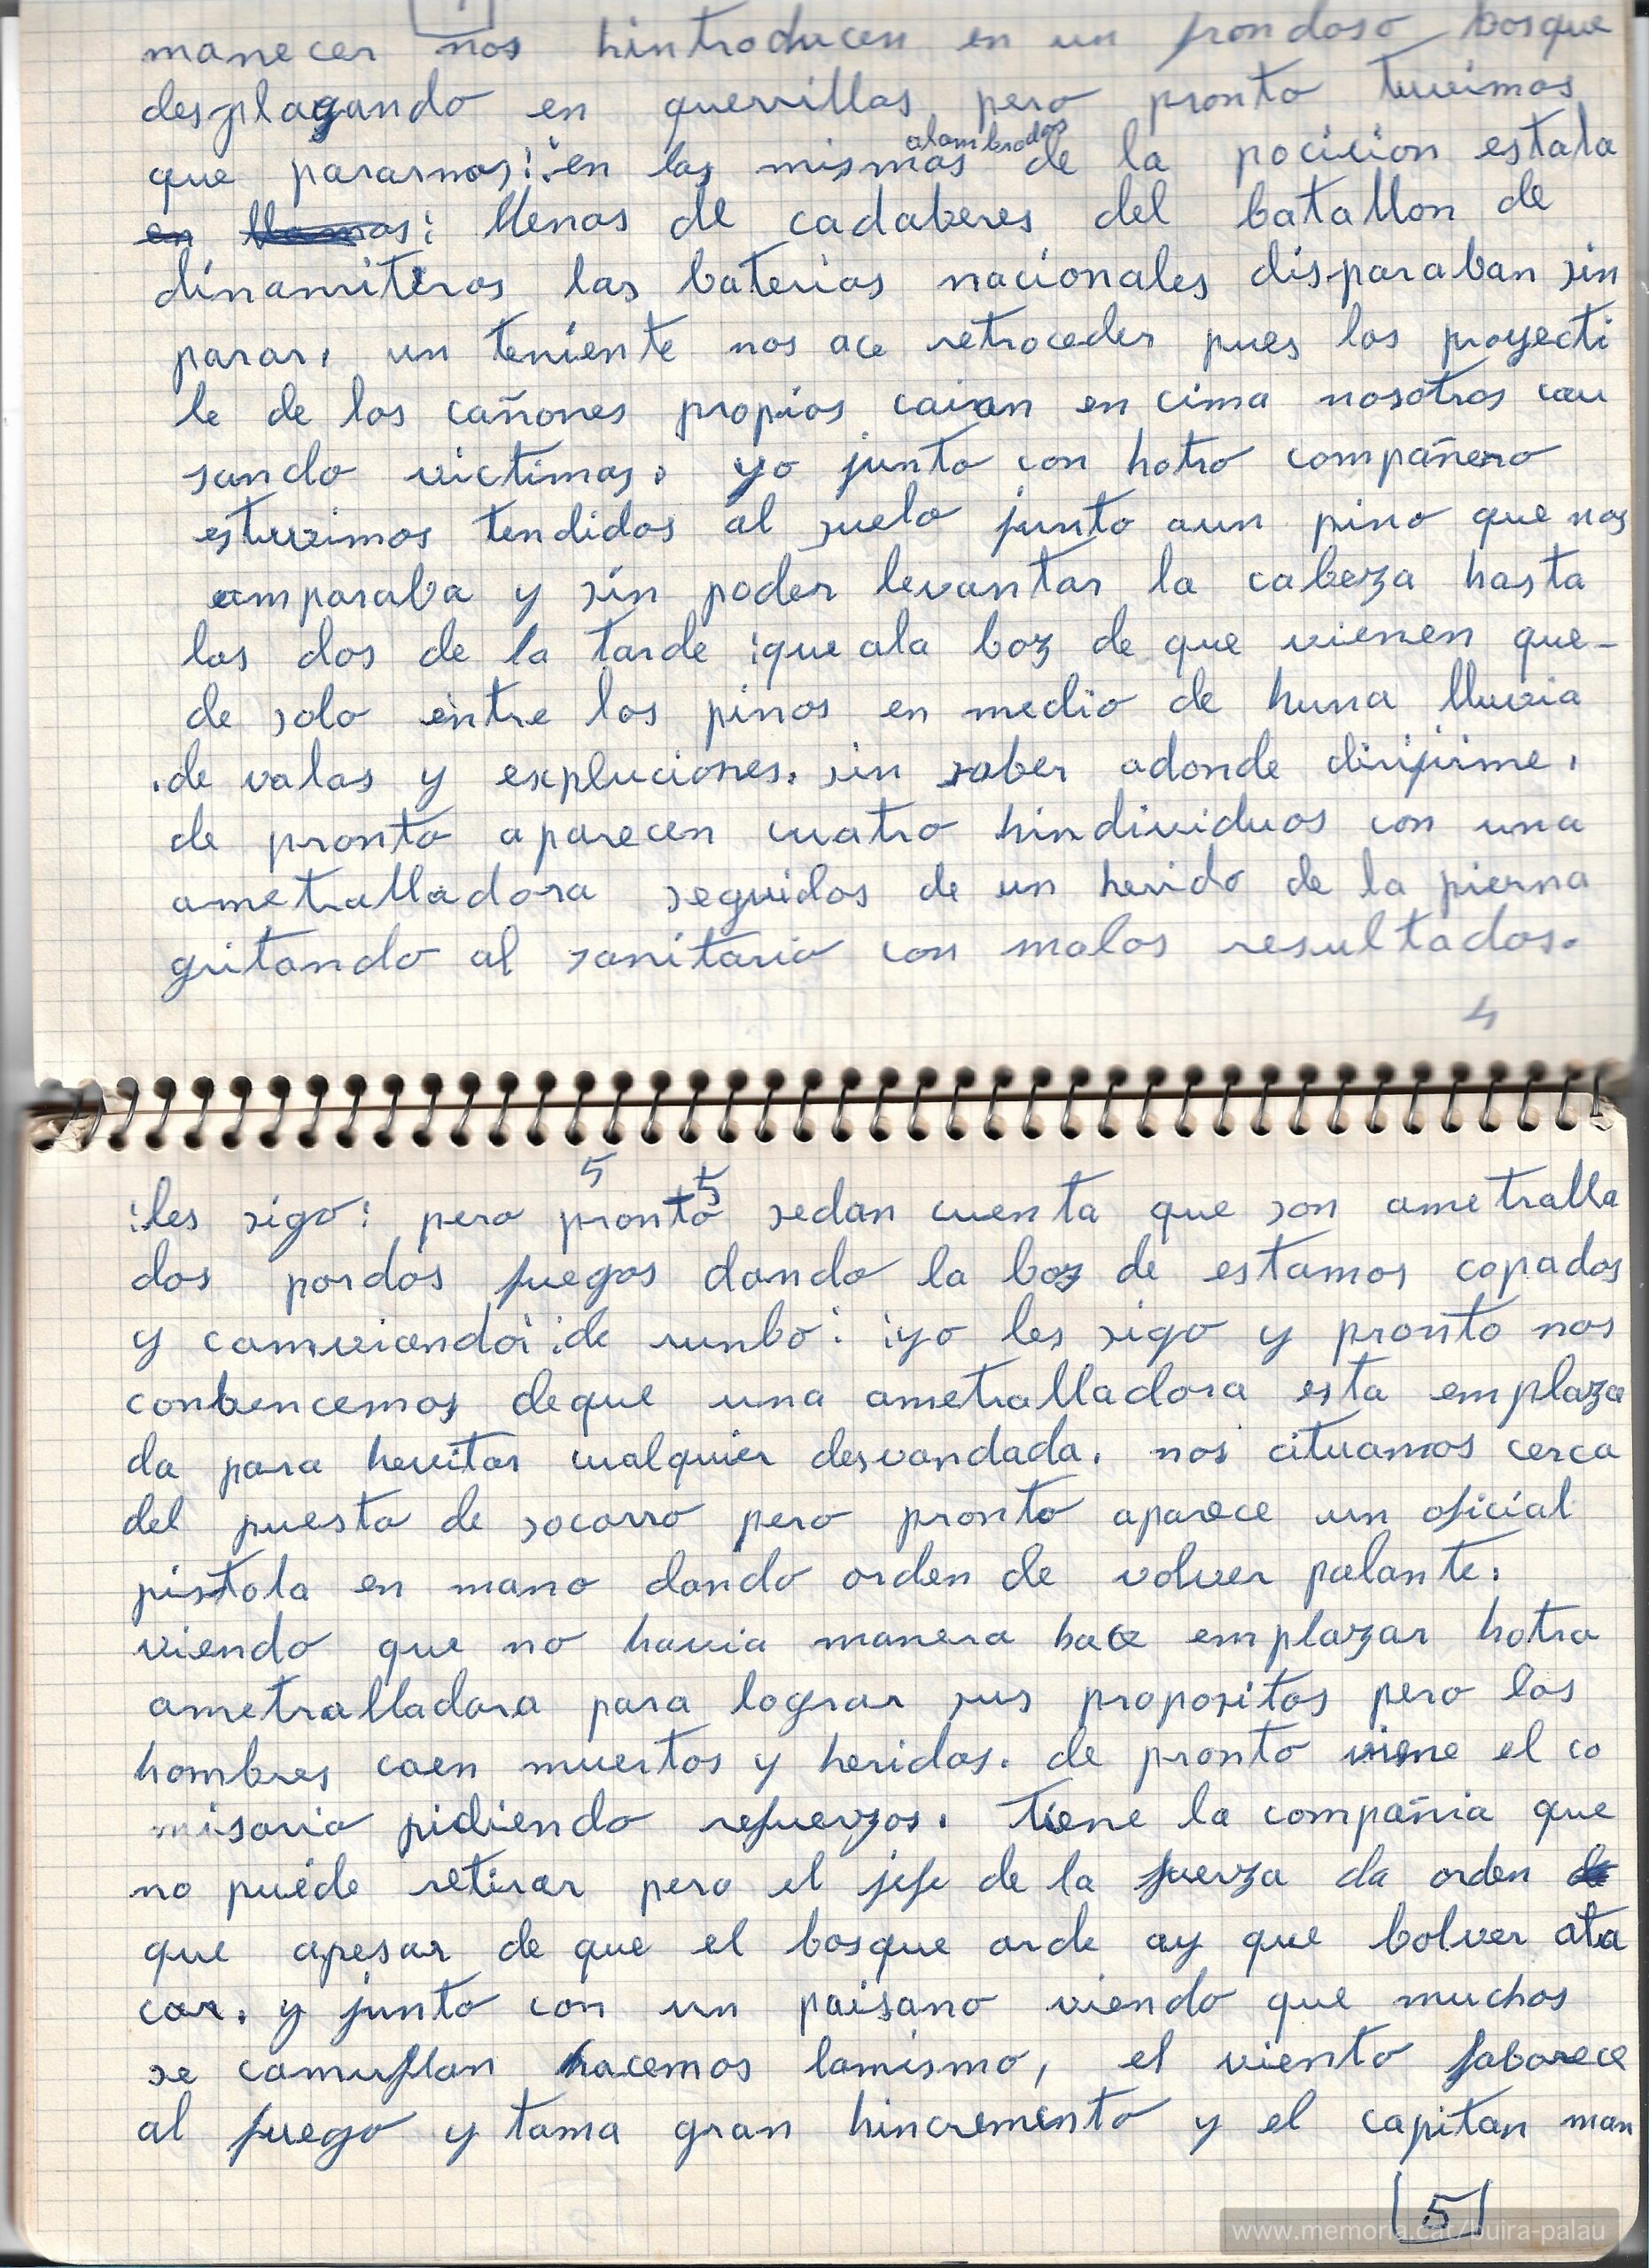 manecer nos hintroducen en un frondoso bosque
desplagando en guerrillas pero pronto tuvimos
alambrados
que pararnos: :en las mismas de la pocicion estala
en llamas: llenas de cadaberes del batallon de
dinamiteros las baterias nacionales disparaban sin
parar, un teniente nos ace retroceder pues los proyecti
le de los cañones propios caian en cima nosotros cau
sando victimas. yo junto con hotro compañero
estuvimos tendidos al suelo junto aun pino que nos
amparaba y sin poder levantar la cabeza hasta
las dos de la tarde :que ala boz de que vienen que-
de solo entre los pinos en medio de huna lluvia
.de valas y expluciones. sin saber adonde dirijirme.
de pronto aparecen cuatro hindividuos con una
ametralladora seguidos de un herido de la pierna
gritando al sanitario con malos resultados.
4
5 5
:les sigo: pero pronto sedan cuenta que son ametralla
dos pordos fuegos dando la boz de estamos copados
y camviando: :de runbo: :yo les sigo y pronto nos
conbencemos deque una ametralladora esta emplaza
da para hevitar cualquier desvandada. nos cituamos cerca
del puesto de socorro pero pronto aparece un oficial
pistola en mano dando orden de volver palante.
viendo que no havia manera hace emplazar hotra
ametralladora para lograr sus propositos pero los
hombres caen muertos y heridos. de pronto viene el co
misario pidiendo refuerzos. Tiene la compañia que
no puede retirar pero el jefe de la fuerza da orden de
que apesar de que el bosque arde ay que bolver ata
car. y junto con un paisano viendo que muchos
se camuflan hacemos lomismo, el viento faborece
al fuego y toma gran hincremento y el capitan man
5
www.memoria.cat/buira-palau